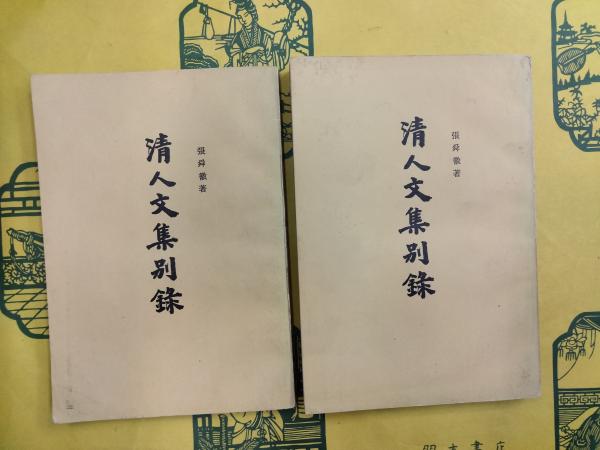 清人文集别錄
張舜徽著
清人文集别錄
張舜徽著
書店